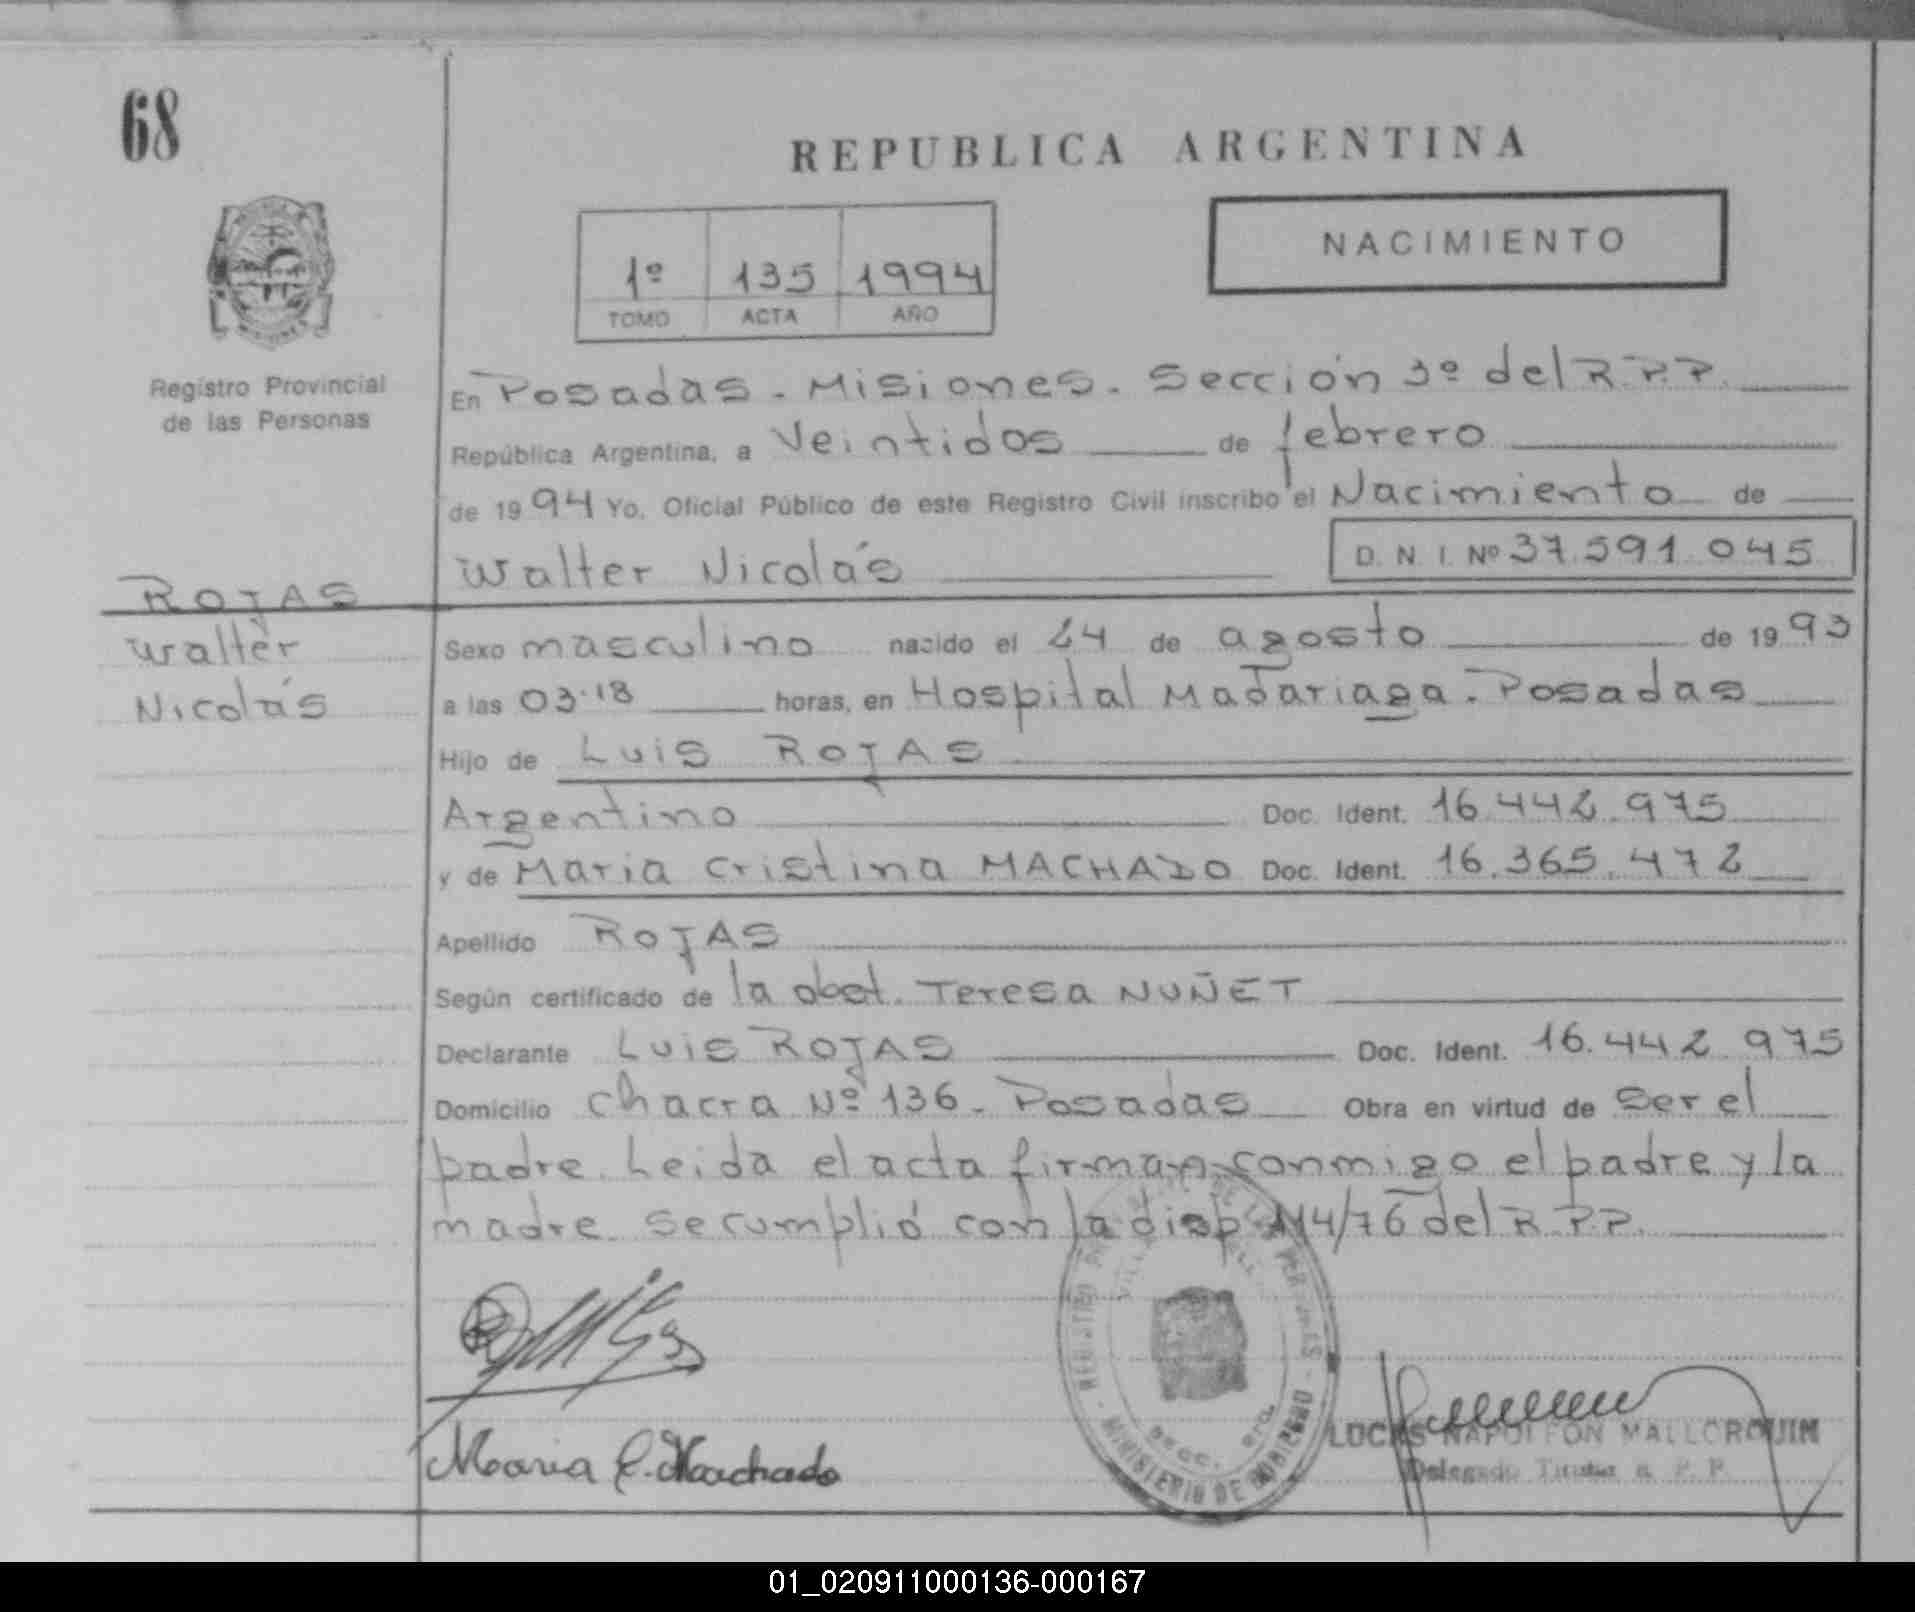 68
REPUBLICA ARGENTINA
NACIMIENTO
1º 135 1994
TOMO ACTA AÑO
Registro Provincial
de las Personas
En Posadas - Misiones - Sección 3º del R.P.P.
República Argentina, a Veintidos de febrero
de 1994 Yo, Oficial Público de este Registro Civil inscribo el Nacimiento de
Walter Nicolás D. N. I. Nº 37.591.045
ROJAS
Walter
Nicolás
Sexo masculino nacido el 24 de agosto de 1993
a las 03.18 horas, en Hospital Madariaga - Posadas
Hijo de Luis ROJAS
Argentino Doc. Ident. 16.442.975
y de Maria Cristina MACHADO Doc. Ident. 16.365.472
Apellido ROJAS
Según certificado de la obst. Teresa NUÑET
Declarante Luis ROJAS Doc. Ident. 16.442.975
Domicilio Chacra Nº 136 - Posadas Obra en virtud de ser el
padre. Leida el acta firman conmigo el padre y la
madre. Se cumplió con la disp 114/76 del R.P.P.
Maria C. Machado
REGISTRO DE LAS PERSONAS
MINISTERIO DE GOBIERNO
LUCAS NAPOLEON MALLORQUIN
Delegado Titular R. P. P.
01_020911000136-000167